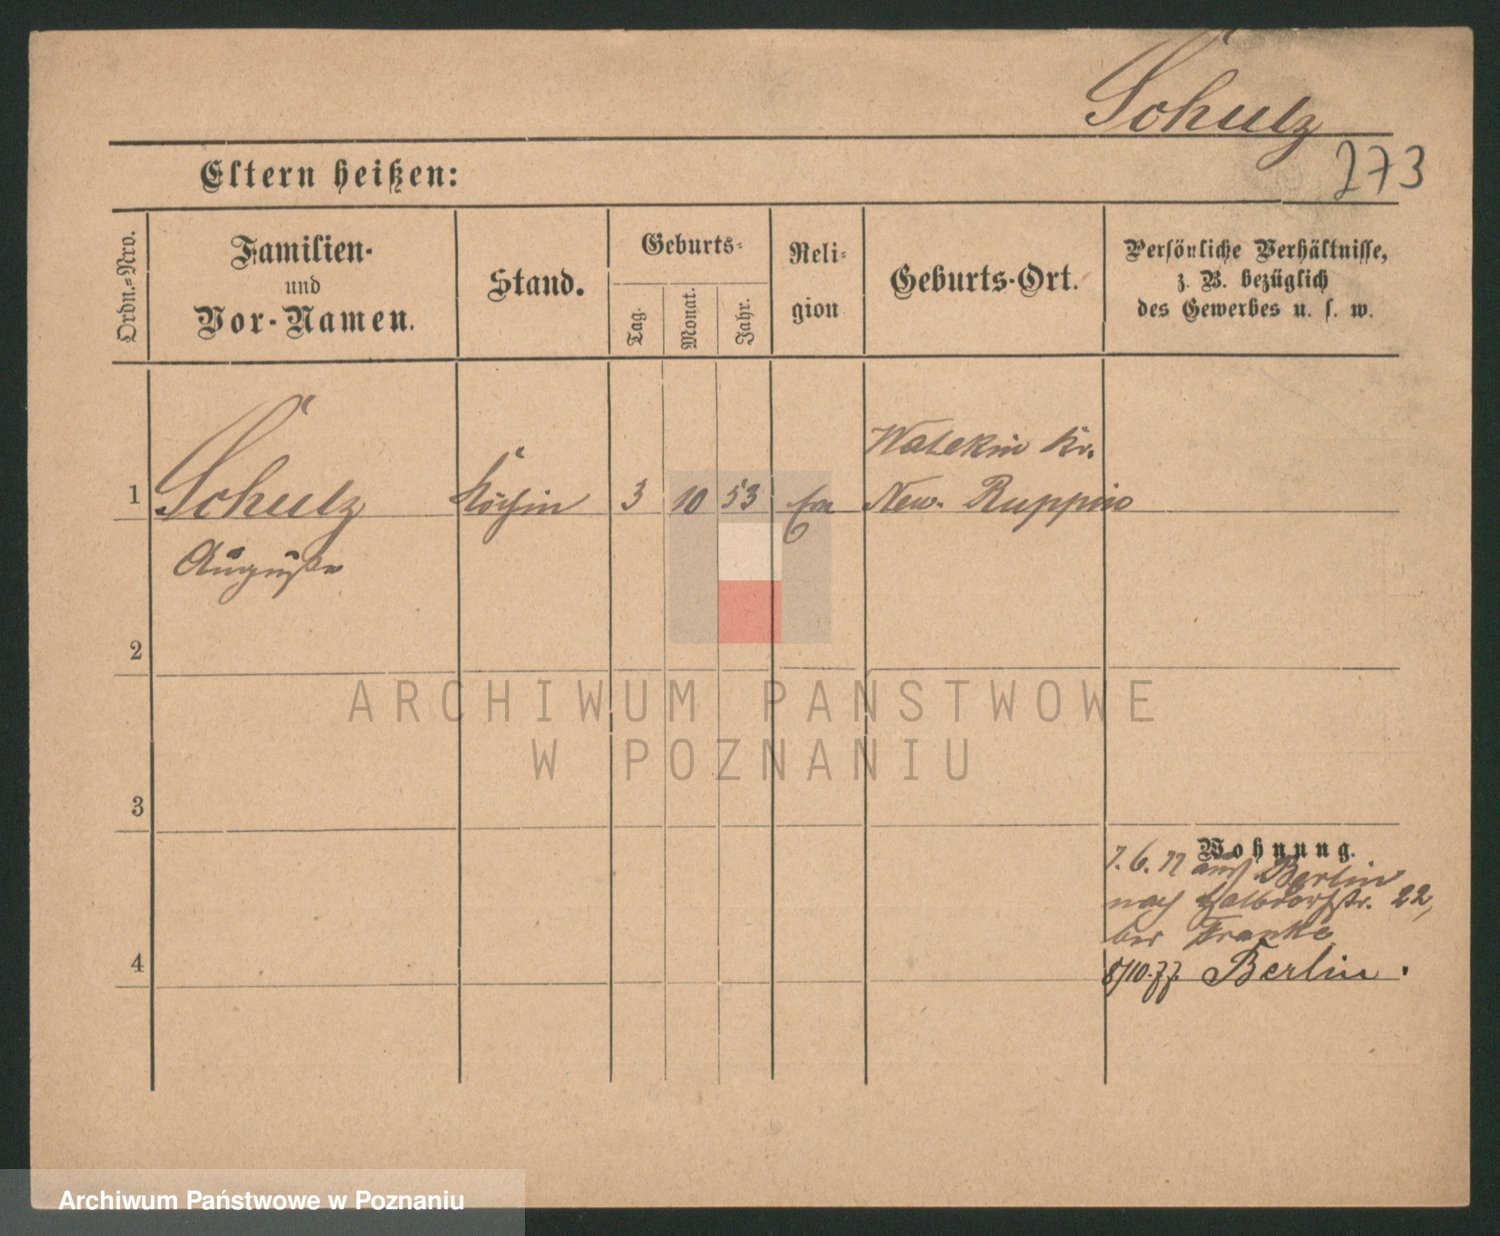 Schulz
273
Eltern heißen:
Ordn.-Nro.
Familien-
und
Vor-Namen.
Stand.
Geburts-
Tag.
Monat.
Jahr.
Reli-
gion
Geburts-Ort.
Persönliche Verhältnisse,
z. B. bezüglich
des Gewerbes u. s. w.
Kr.
1 Schulz Köchin 3 10 53 Neu-Ruppin
Auguste
2
ARCHIWUM PAŃSTWOWE
W POZNANIU
3
Wohnung.
7. 6. 77 aus Berlin
nach 22,
bei Franke
4 8/10.77. Berlin.
Archiwum Państwowe w Poznaniu